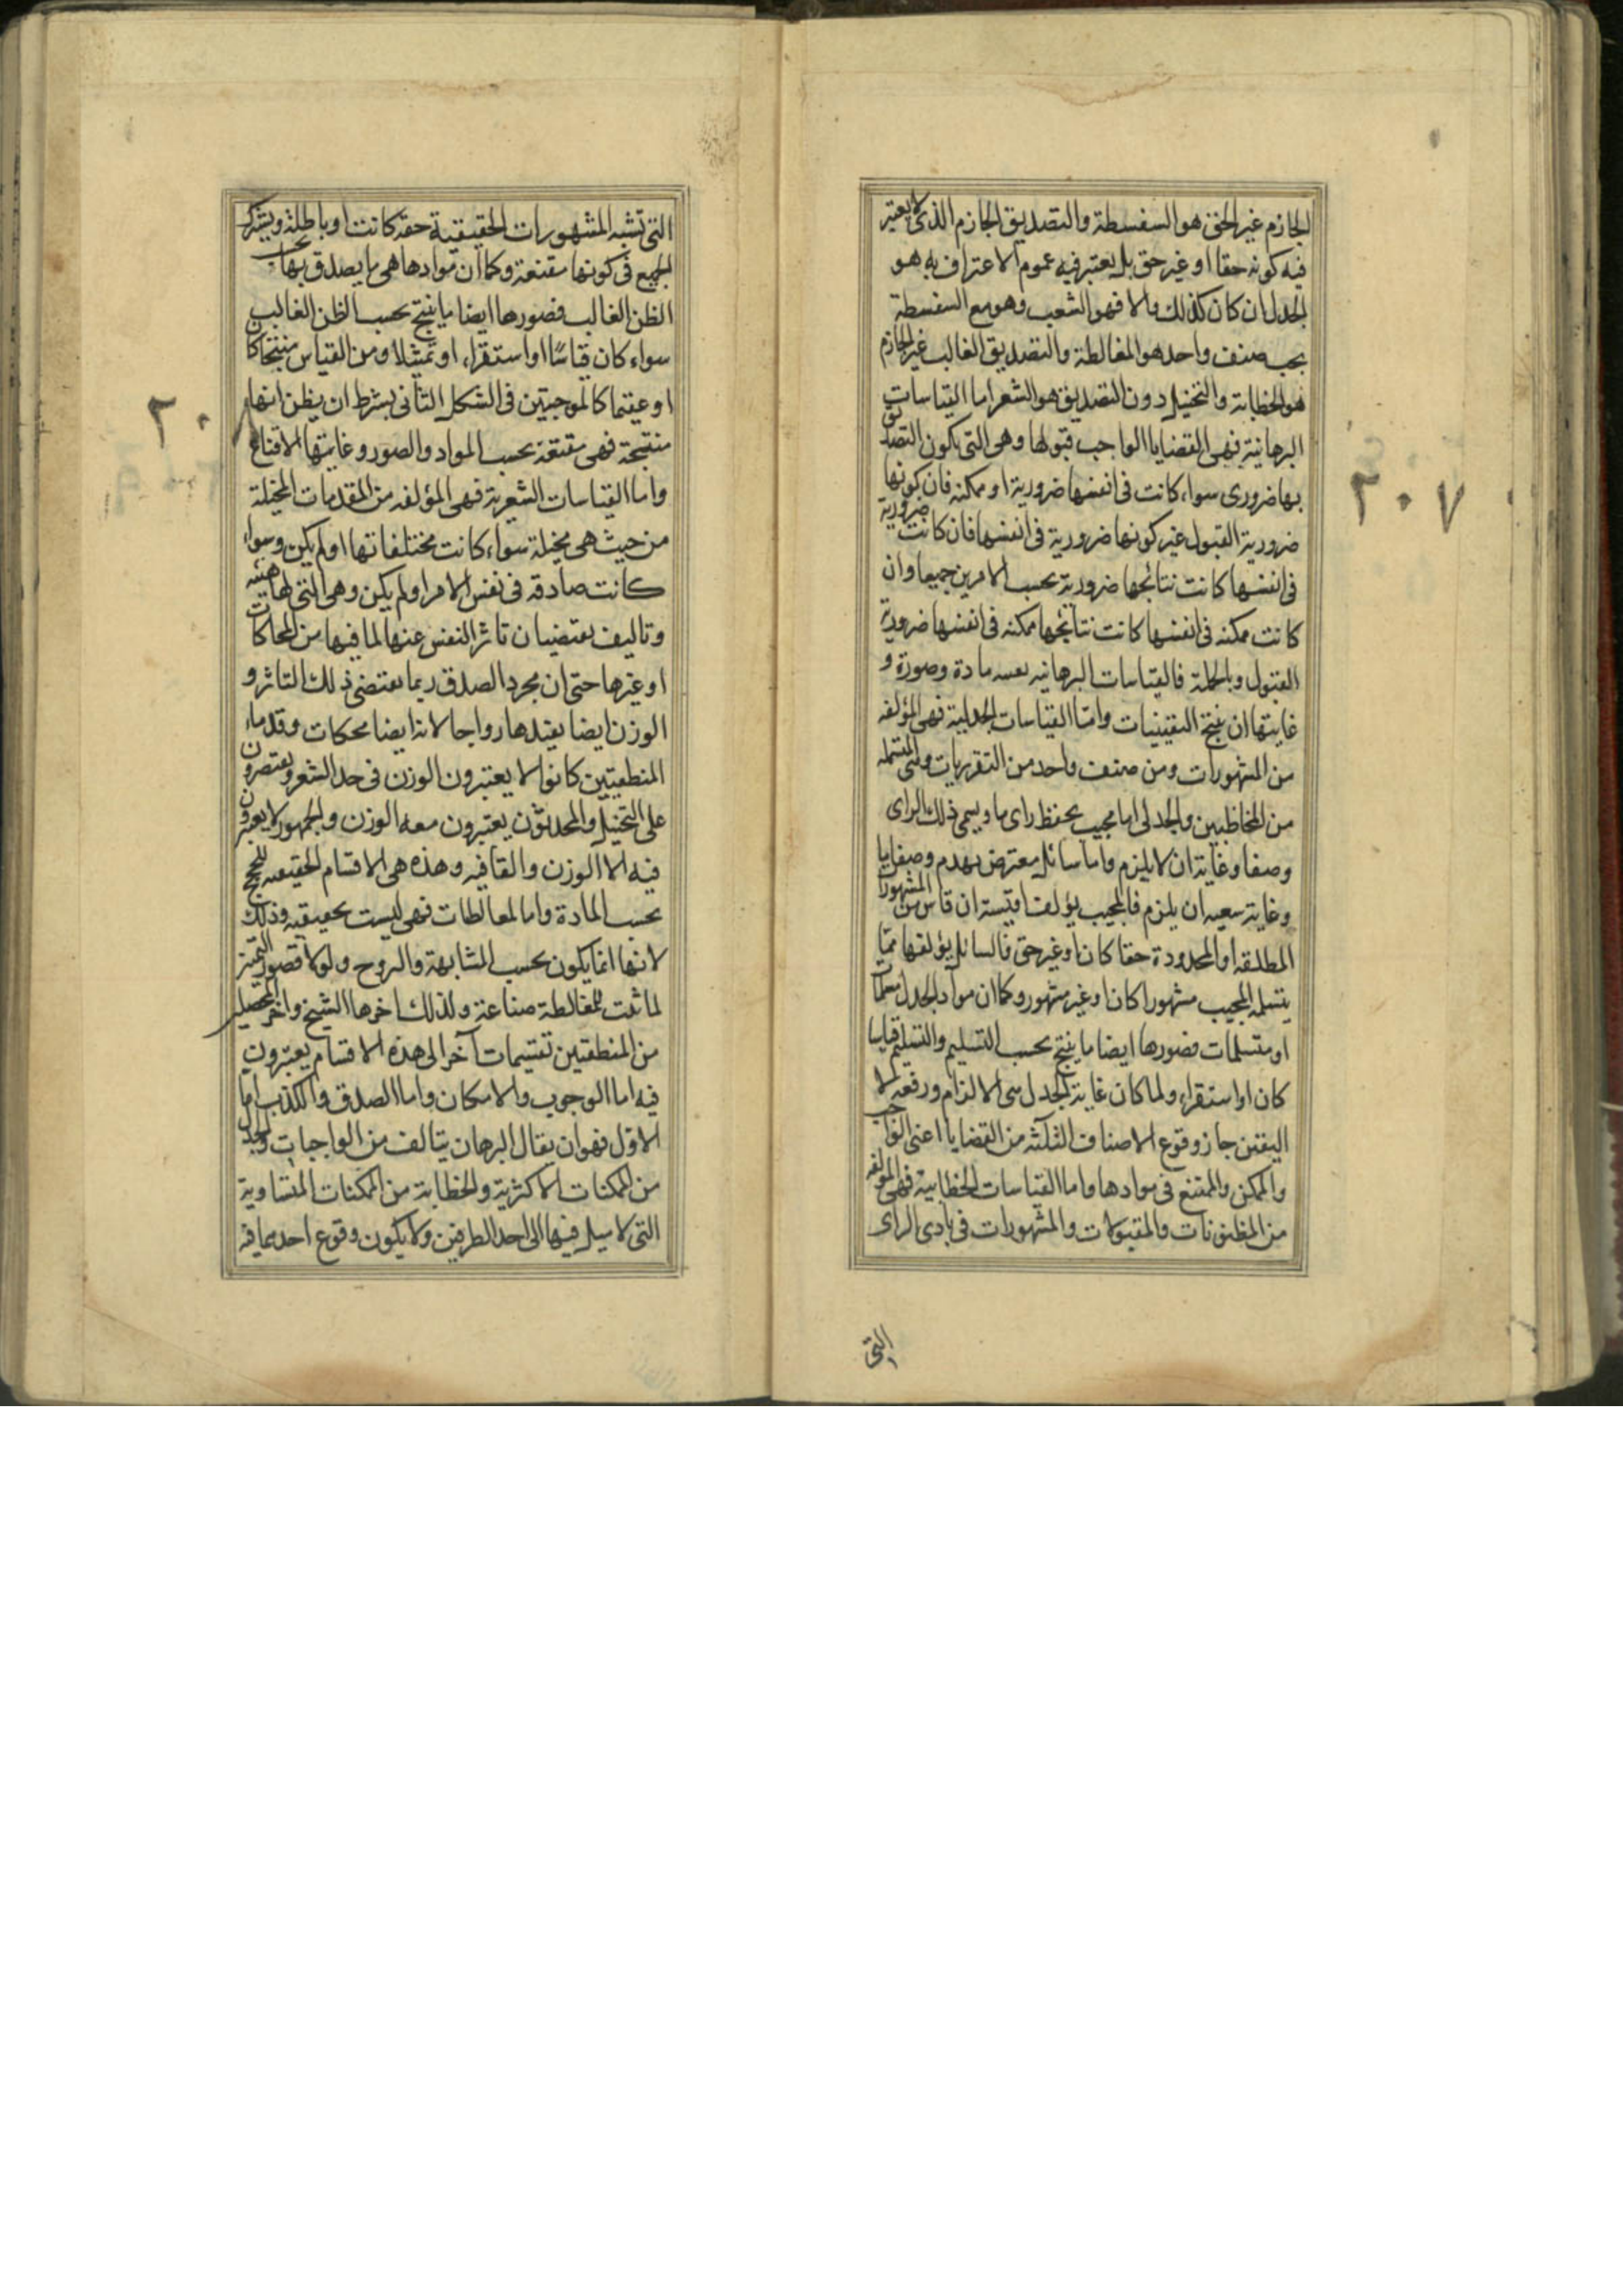 الجازم غير الحق هو السفسطة والتصديق الجازم الذى لا يعتبر
فيه كونه حقا او غير حق بل يعتبر فيه عموم الاعتراف به هو
الجدل ان كان كذلك والا فهو الشعب وهو مع السفسطة
تحت صنف واحد هو المغالطة والتصديق الغالب غير الجازم
هو الخطابة والتخييل دون التصديق هو الشعر اما القياسات
البرهانية فهى القضايا الواجب قبولها وهى التى يكون التصديق
بها ضرورى سواء كانت فى انفسها ضرورية او ممكنه فان كونها
ضرورية القبول غير كونها ضرورية فى انفسها فان كانت ضرورية
فى انفسها كانت نتائجها ضرورية بحسب الامرين جميعا وان
كانت ممكنه فى انفسها كانت نتائجها ممكنه فى انفسها ضرورية
القبول وبالجملة فالقياسات البرهانيه مادة وصورة و
غايتها ان ينتج اليقينيات واما القياسات الجدلية فهى المؤلفه
من المشهورات ومن صنف واحد من التقريريات وهى المتسلمه
من المخاطبين والجدلى اما مجيب يحفظ راى ما ويسمى ذلك الراى
وضعا وغايته ان لا يلزم واما سائل معترض يهدم وضعا ما
وغاية سعيه ان يلزم فالمجيب يؤلف اقيسته ان قاس من المشهورات
المطلقه او المحدودة حقا كان او غير حق فالسائل يؤلفها مما
يتسلمه المجيب مشهورا كان او غير مشهور وكما ان مواد الجدل مسلمات
او متسلمات فصورها ايضا ما ينتج بحسب التسليم والتسليم قياسا
كان او استقراء ولما كان غاية الجدل هى الالزام ورفعه لا
اليقين جاز وقوع الاصناف الثلثه من القضايا اعنى الواجب
والممكن والممتنع فى موادها واما القياسات الخطابية فهى المؤلفه
من المظنونات والمقبولات والمشهورات فى بادى الراى
التى
٢٠٧
التى تشبه المشهورات الحقيقية حقه كانت او باطلة ويشترك
الجميع فى كونها مقنعة وكما ان موادها هى ما يصدق بها بحسب
الظن الغالب فصورها ايضا ما ينتج بحسب الظن الغالب
سواء كان قياسا او استقراء او تمثيلا ومن القياس منتجا كان
او عقيما كالموجبتين فى الشكل الثانى بشرط ان يظن انها
منتجة فهى مقنعة بحسب المواد والصور وغايتها الاقناع
واما القياسات الشعرية فهى المؤلفه من المقدمات المخيلة
من حيث هى مخيلة سواء كانت مختلفاتها او لم يكن وسواء
كانت صادقه فى نفس الامر او لم يكن وهى التى لها هيئه
وتاليف يقتضيان تاثر النفس عنها لما فيها من المحاكات
او غيرها حتى ان مجرد الصدق ربما يقتضى ذلك التاثر و
الوزن ايضا يفيدها رواجا لانه ايضا محكات وقدماء
المنطقيين كانوا لا يعتبرون الوزن فى حد الشعر ويقتصرون
على التخييل والمحدثون يعتبرون معه الوزن والجمهور لا يعتبرون
فيه الا الوزن والقافيه وهذه هى الاقسام الحقيقيه للحجج
بحسب المادة واما المغالطات فهى ليست بحقيقيه وذلك
لانها انما يكون بحسب المشابهة والروح ولولا قصور التميز
لما ثبت للمغالطة صناعة ولذلك اخرها الشيخ واخر المحصلين
من المنطقيين تقسيمات آخر الى هذه الاقسام يعتبرون
فيه اما الوجوب والامكان واما الصدق والكذب اما
الاول فهو ان يقال البرهان يتالف من الواجبات والجدل
من الممكنات الاكثرية والخطابة من الممكنات المتساوية
التى لا ميل فيها الى احد الطرفين ولا يكون وقوع احدهما فيه
٢٠٨